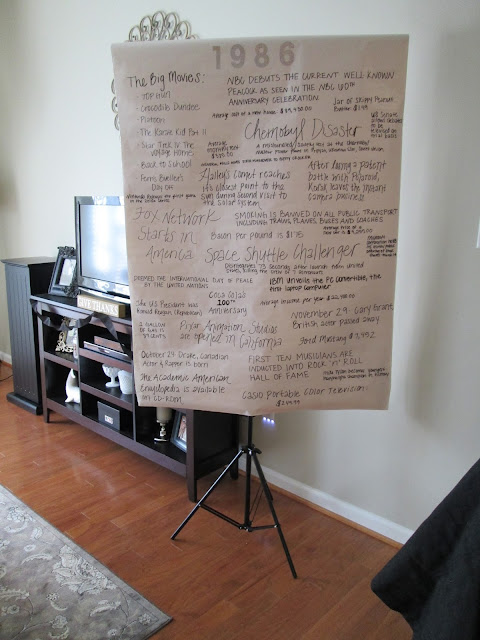 1986
The Big Movies:
· Top Gun
· Crocodile Dundee
· Platoon
· The Karate Kid Part II
· Star Trek IV The
Voyage Home
· Back to School
· Ferris Bueller's
Day Off
NBC DEBUTS THE CURRENT WELL KNOWN
PEACOCK AS SEEN IN THE NBC 60TH
ANNIVERSARY CELEBRATION
Jar of Skippy Peanut
Butter $1.49
Chernobyl Disaster
US Senate
allows debates
to be
Halley's Comet reaches
it's closest point to the
sun during second visit to
the solar system
After losing a patent
battle with Polaroid,
Kodak leaves the instant
camera business
Fox Network
Starts in
America
SMOKING IS BANNED ON ALL PUBLIC TRANSPORT
INCLUDING TRAINS, PLANES, BUSES AND COACHES
Bacon per pound is $1.75
Space Shuttle Challenger
Disintegrates 73 seconds after launch from United
States, killing the crew of 7 astronauts
DEEMED THE INTERNATIONAL DAY OF PEACE
BY THE UNITED NATIONS
IBM Unveils the PC Convertible, the
first laptop computer
Coca Cola's
100th
Anniversary
Average income per year $22,400.00
The US President was
Ronald Reagan (Republican)
November 29 Cary Grant
British actor passed away
A GALLON
OF GAS IS
89 CENTS
Pixar Animation Studios
are opened in California
Ford Mustang $7,452
October 24 Drake, Canadian
Actor & Rapper is born
FIRST TEN MUSICIANS ARE
INDUCTED INTO ROCK 'N' ROLL
HALL OF FAME
Mike Tyson becomes youngest
heavyweight champion in history
The Academic American
Encyclopedia is available
on CD-ROM
CASIO Portable Color Television
$299.99
GIVE THANKS